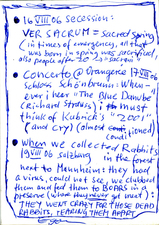 • 16 VIII 06 SECESSION:
VER SACRUM = Sacred spring
(in times of emergency, all that
was born in spring was sacrificed,
also people after 20 =
• Concerto @ Orangerie 17 VIII 06
Schloss Schönbrunn: When-
ever I hear "The Blue Danube"
(Richard Strauss) i must
think of Kubrick's "2001"
(and cry) (almost ioned)
end!
• When we collected Rabbits
19 VIII 06 Salzburg in the forest
next to Mennheim: they had
a virus, could not see, we clubbed
them and fed them to BEARS in a
preserve (whom they never eat meat):
THEY WENT CRAZY FOR THESE DEAD
RABBITS, TEARING THEM APART